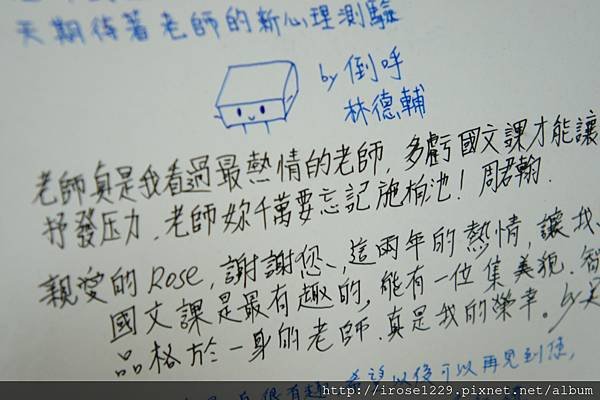 天期待著老師的新心理測驗
by 倒呼
林德輔
老師真是我看過最熱情的老師,多虧國文課才能讓
抒發压力.老師妳千萬要忘記施柏池!周君翰.
親愛的 Rose,謝謝您、這兩年的熱情,讓我、
國文課是最有趣的,能有一位集美貌.智
品格於一身的老師.真是我的榮幸。by吳
很有趣,希望以後可以再見到您,
http://irose1229.pixnet.net/album